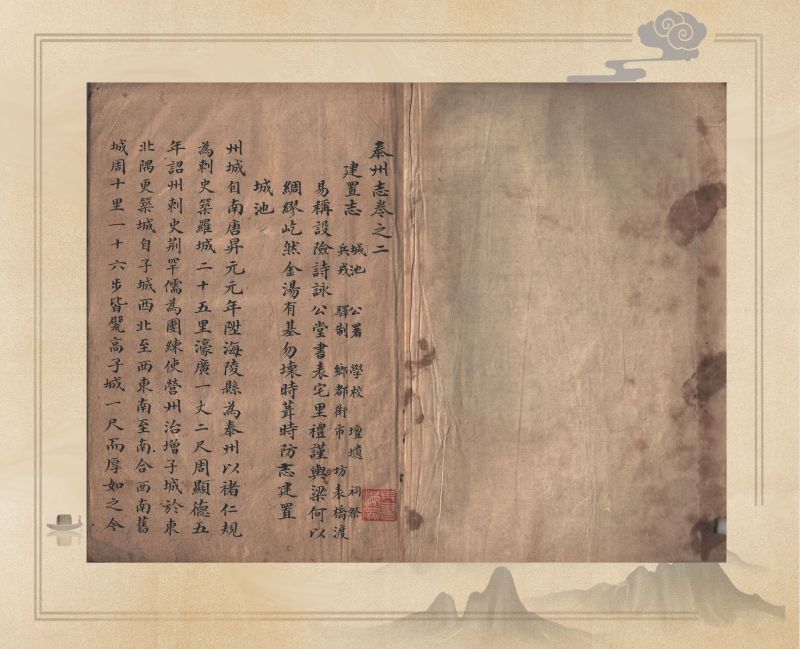 泰州志卷之二
建置志 城池 公署 學校 壇壝 祠祭
兵戎 驛制 鄉都街市 坊表橋渡
易稱設險詩詠公堂書表宅里禮謹輿梁何以
綢繆屹然金湯有基勿壞時葺時防志建置
城池
州城自南唐昇元元年陞海陵縣為泰州以褚仁規
為刺史築羅城二十五里濠廣一丈二尺周顯德五
年詔州刺史荊罕儒為團練使營州治增子城於東
北隅更築城自子城西北至西東南至南合西南舊
城周十里一十六步皆甓高子城一尺而厚如之今